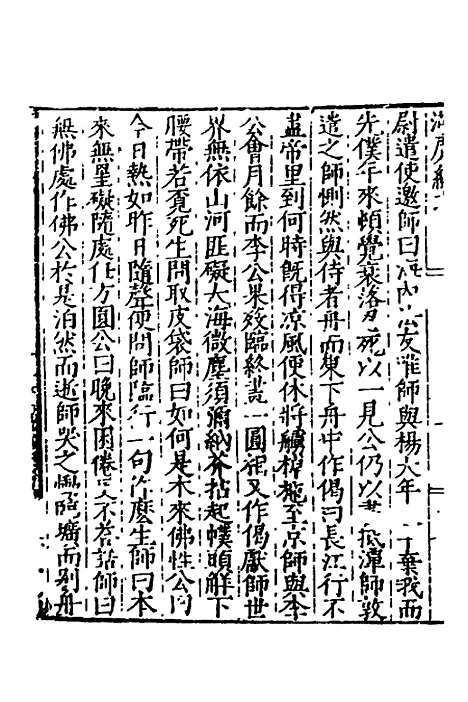 尉遣使邀師曰海內法友唯師與楊大年 棄我而
先僕年來頓覺衰落忍死以一見公仍以書抵潭師敦
遣之師惻然與侍者舟而東下舟中作偈曰長江行不
盡帝里到何時既得凉風便休將艣棹施至京師與李
公會月餘而李公果歿臨終畫一圓相又作偈獻師世
界無依山河匪礙大海微塵須彌納芥拈起幞頭解下
腰帶若覔死生問取皮袋師曰如何是本來佛性公曰
今日熱如昨日隨聲便問師臨行一句作麽生師曰本
來無罣礙隨處任方圓公曰晚來困倦更不荅話師曰
無佛處作佛公於是泊然而逝師哭之慟臨壙而別舟